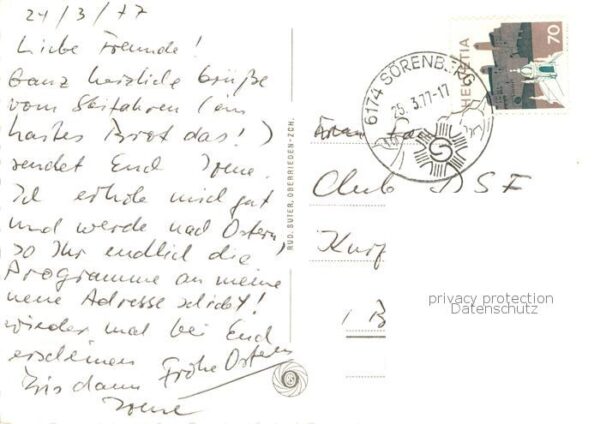 24/3/77
Liebe Freunde!
Ganz herzliche Grüße
vom Skifahren (ein
hartes Brot das!)
sendet Euch Irene.
Ich erhole mich gut
und werde nach Ostern
so Ihr endlich die
Programme an meine
neue Adresse schickt!
wieder mal bei Euch
erscheinen Frohe Ostern
Bis dann
Irene
RUD. SUTER, OBERRIEDEN-ZCH.
6174 SÖRENBERG
25.3.77-17
HELVETIA
70
Club DSF
Kurf
1 B
privacy protection
Datenschutz